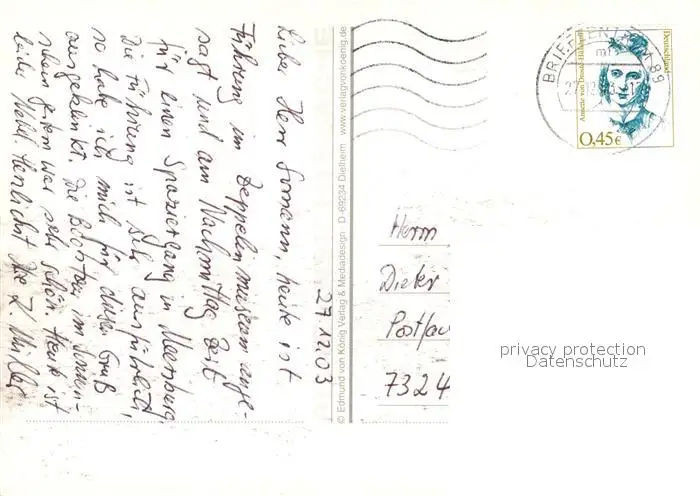 27.12.03
Lieber Herr Formann, heute ist
Führung im Zeppelinmuseum ange-
sagt und am Nachmittag Zeit
für einen Spaziergang in Meersburg.
Die Führung ist sehr ausführlich,
so habe ich mich für diesen Gruß
ausgeklinkt. Die Bootsfahrt im Sonnen-
schein gestern war sehr schön. Heute ist
leider Nebel. Herzlichst Ihre Z. Müller
© Edmund von König Verlag & Mediadesign D-69234 Dielheim www.verlagvonkoenig.de
BRIEFZENTRUM 89
Deutschland
Annette von Droste-Hülshoff
0,45€
Herrn
Dieter
Postfac
7324
privacy protection
Datenschutz